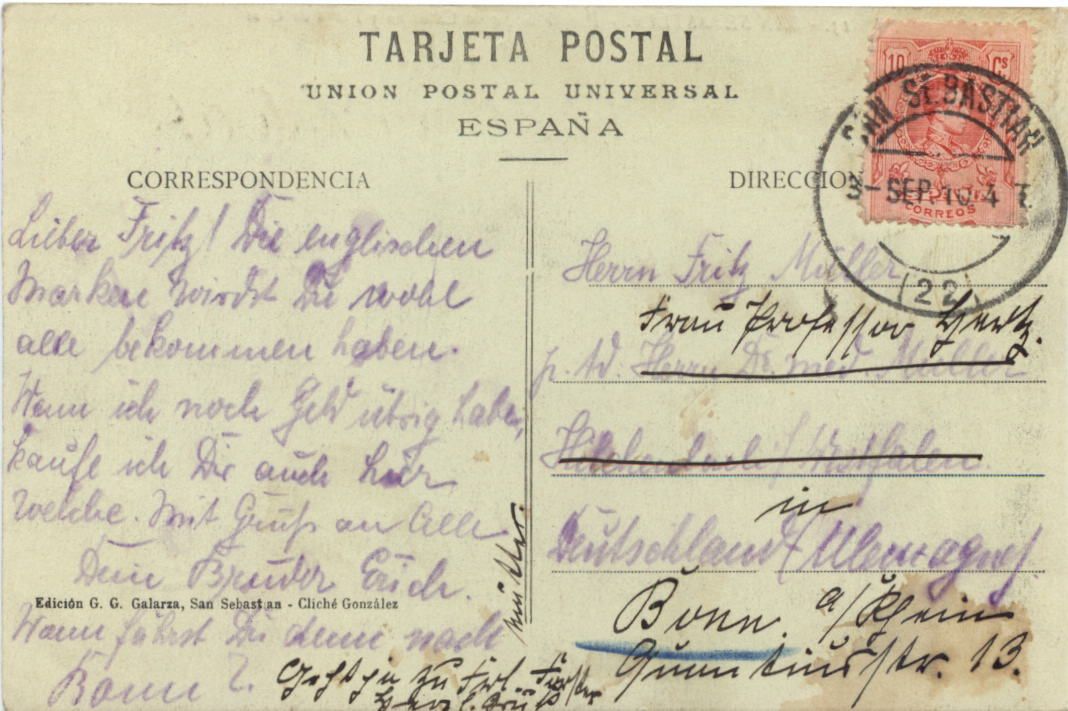 TARJETA POSTAL
UNION POSTAL UNIVERSAL
ESPAÑA
CORRESPONDENCIA
Lieber Fritz! Die englischen
Marken wirst Du wohl
alle bekommen haben.
Wenn ich noch Geld übrig habe,
kaufe ich Dir auch hier
welche. Mit Gruß an Alle
Dein Bruder Erich.
Edición G. G. Galarza, San Sebastian - Cliché González
Wann fährst Du denn nach
Bonn?
Gehst ja zu Frl.
herzl. Grüß
Mutter.
DIRECCION
10 Cs
CORREOS
SAN SEBASTIAN
3-SEP 10.4 T.
(22)
Herrn Fritz Müller
Frau Professor Hertz.
p. Ad. Herrn Dr. med Müller
Hilchenbach i/Westfalen
in
Deutschland
Bonn a/Rhein
Quantiusstr. 13.